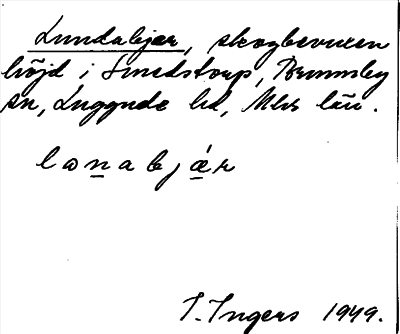 Lundabjer, skogbevuxen
höjd i Smedstorp, Brunnby
sn, Luggude hd, Mlhs län.
lanabjár
I. Ingers 1949.